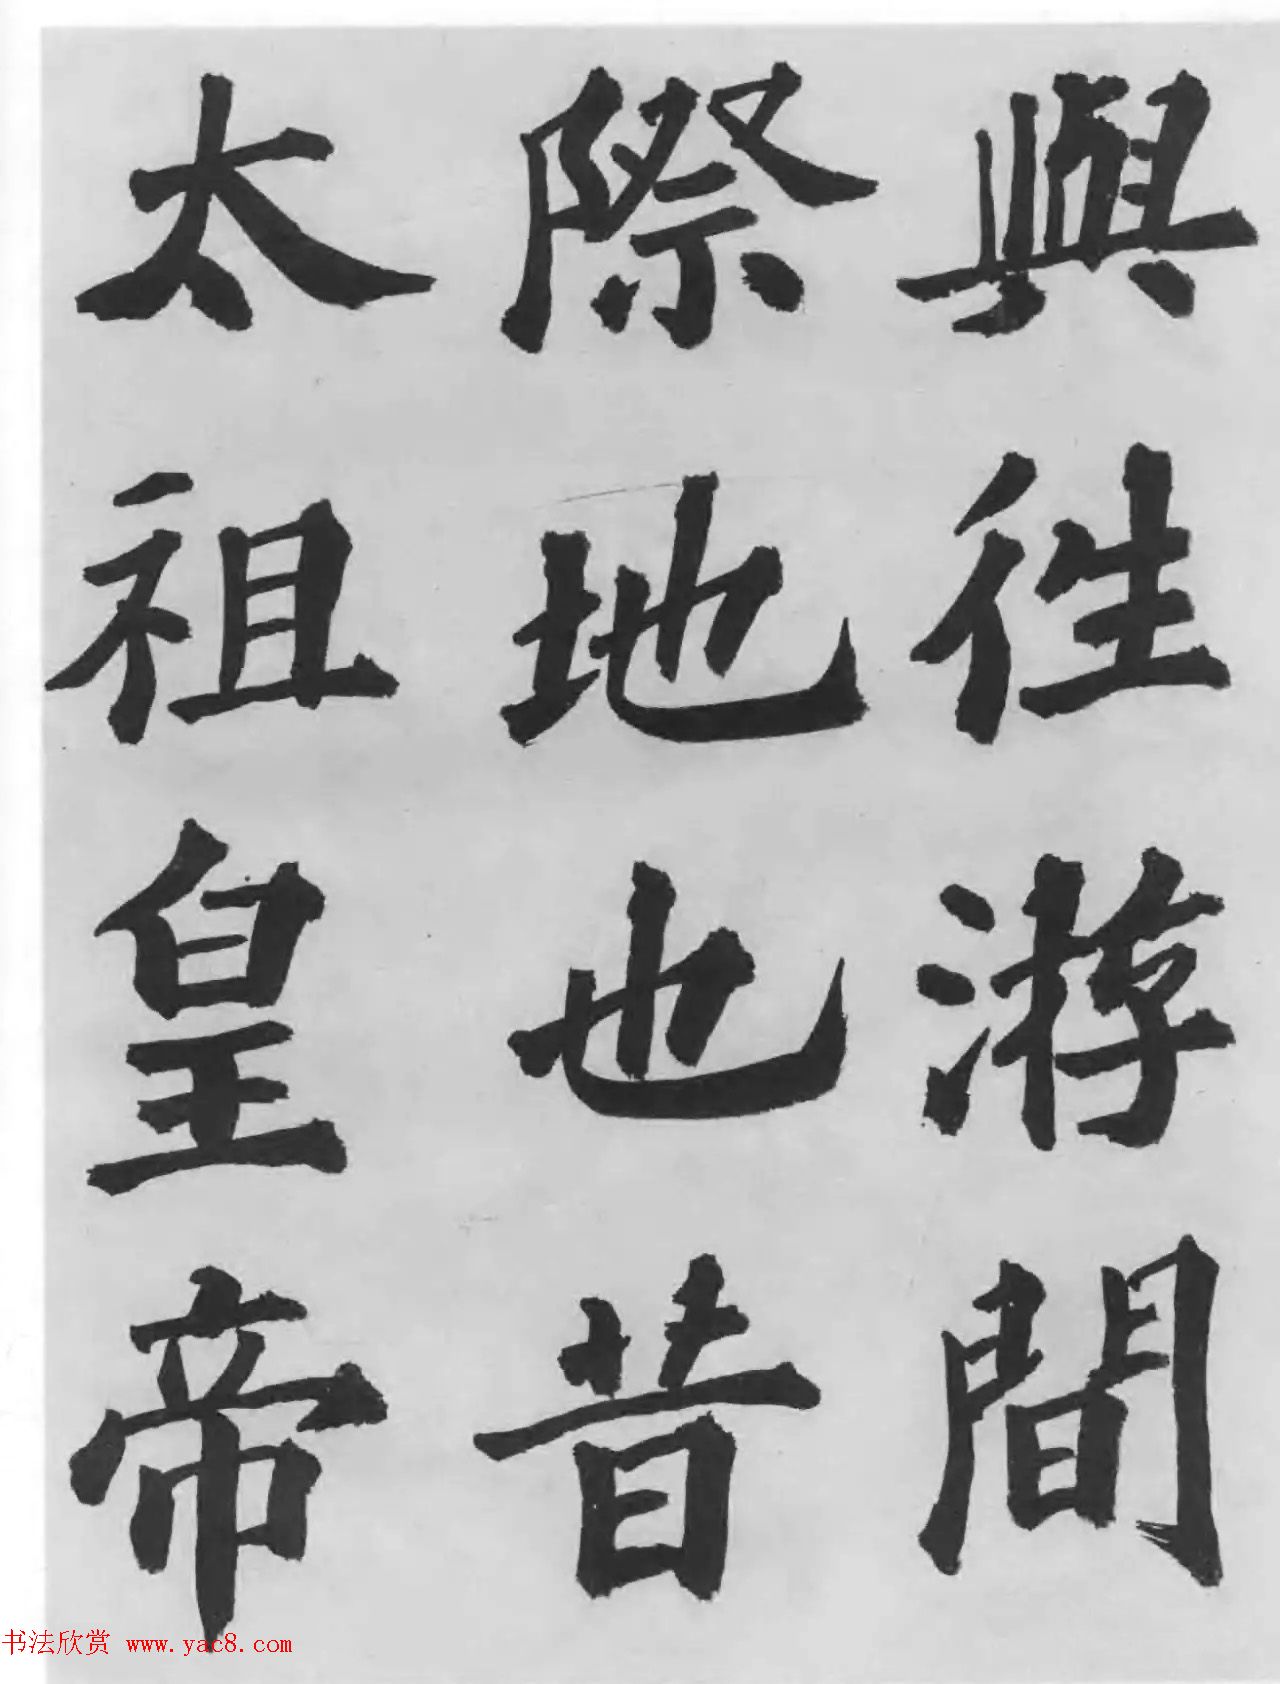 與往游間
際地也昔
太祖皇帝
书法欣赏 www.yac8.com